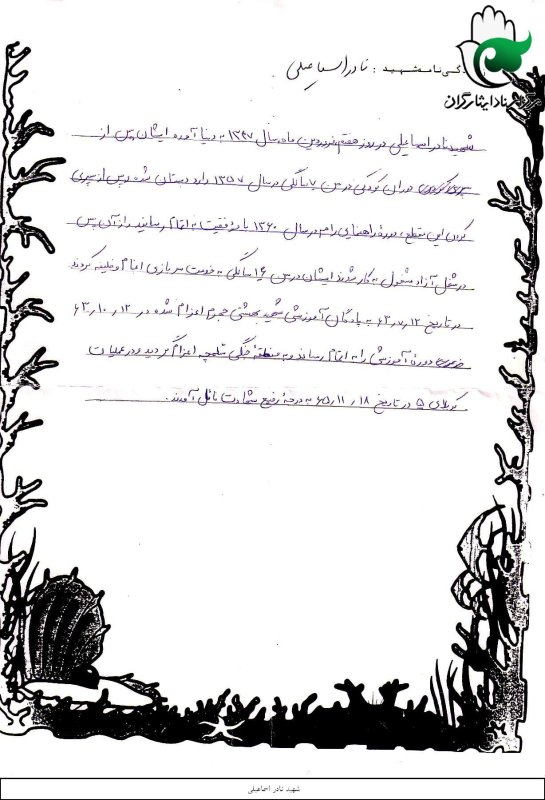 نادایثارگران
نامه شهید : نادر اسماعیلی
شهید نادر اسماعیلی در روز هفتم فروردین ماه سال ۱۳۴۷ به دنیا آمده ایشان پس از
دوران کودکی در سن ۷ سالگی در سال ۱۳۵۷ وارد دبستان شده و پس از سپری
کردن این مقطع، دوره راهنمایی را هم در سال ۱۳۶۰ با موفقیت به اتمام رساندند و از آن پس
در شغل آزاد مشغول به کار شدند ایشان در سن ۱۶ سالگی به خدمت سربازی انجام وظیفه کردند
در تاریخ ۱۲ر۷ر۶۳ به پادگان آموزشی شهید بهشتی اعزام شده در ۱۲ر۱۰ر۶۳
دوره آموزشی را به اتمام رساند و به منطقه جنگی شلمچه اعزام گردید و در عملیات
کربلای ۵ در تاریخ ۱۸ر۱۱ر۶۵ به درجه رفیع شهادت نائل آمدند.
شهید نادر اسماعیلی